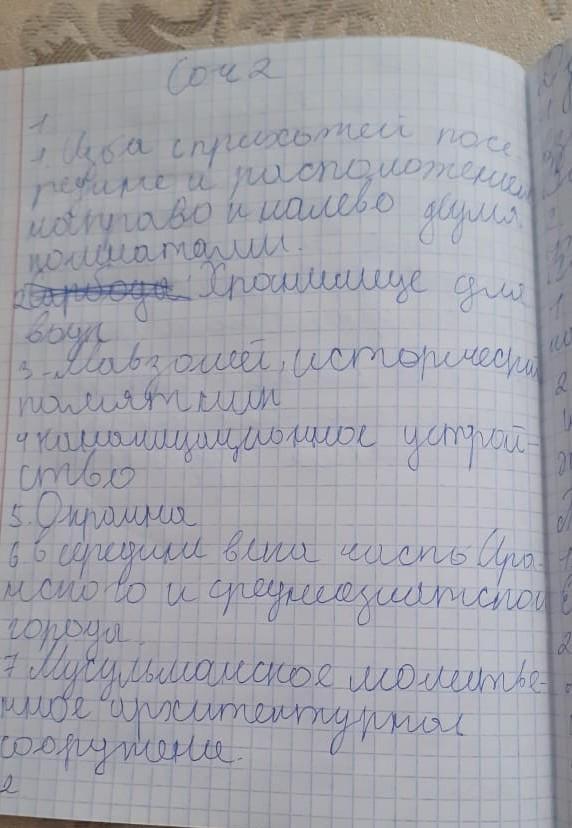 Соч 2
1
1. Изба с прихожей посе-
редине и расположением
направо и налево двумя
комнатами.
2 Хранилище для
воды
3-Мавзолей, исторический
памятник
4 канализационное устрой-
ство
5. Окраина
6 В середине века часть Ира
нского и среднеазиатской
города
7 Мусульманское молитве-
нное архитектурное
сооружение.
2